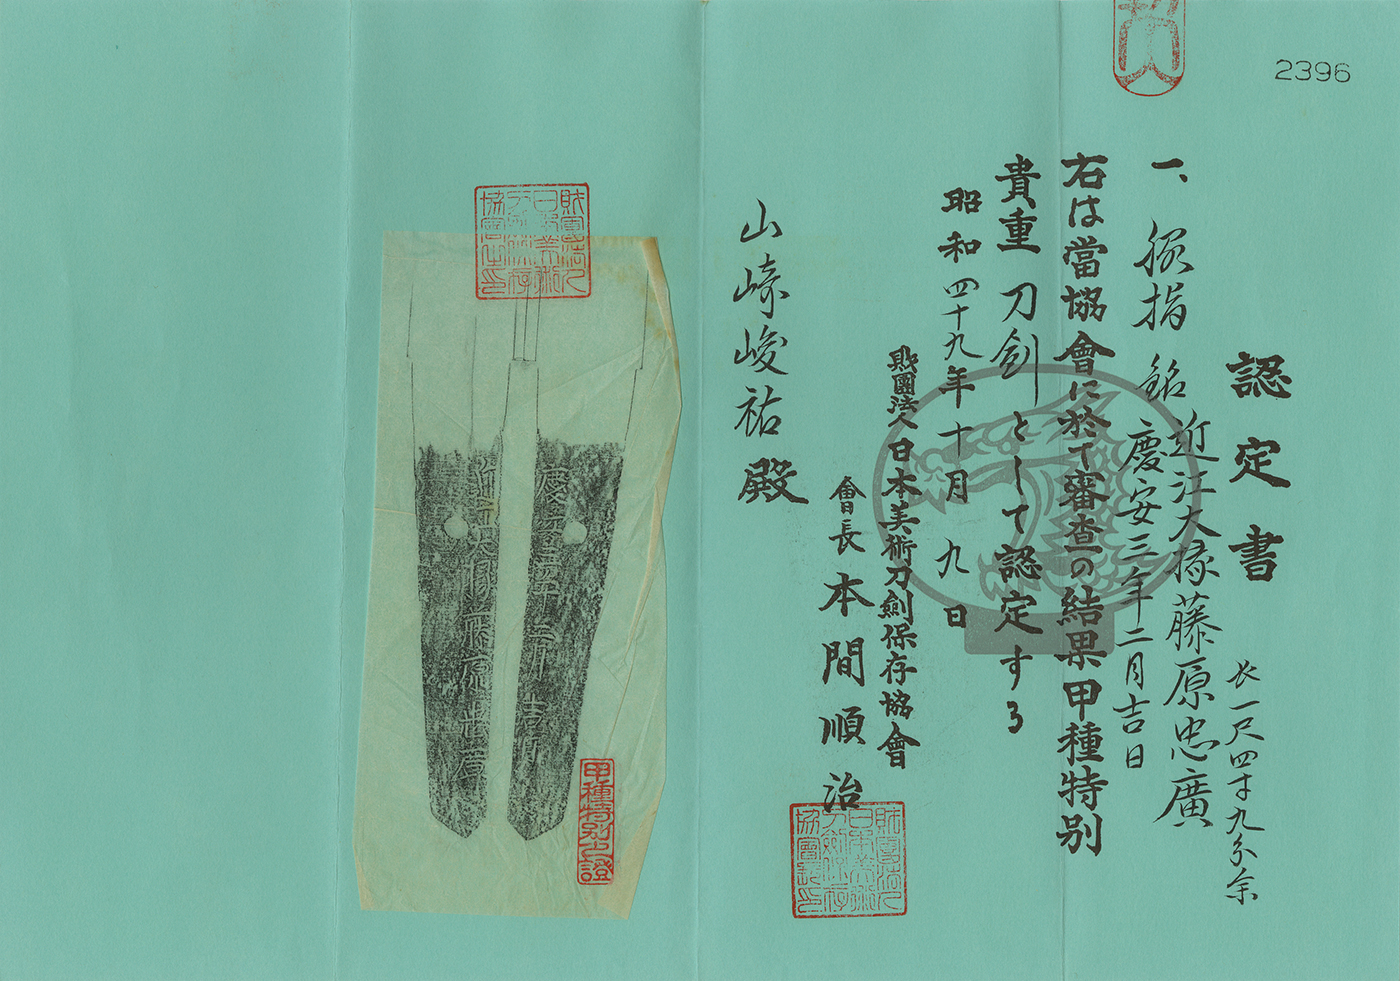 2396
認定書
一、脇指 銘 近江大掾藤原忠廣
長一尺四寸九分余
慶安三年二月吉日
右は當協會に於て審査の結果甲種特別
貴重刀剣として認定する
昭和四十九年十月九日
財團法人日本美術刀劍保存協會
會長 本間順治
山崎峻祐殿
財團法人日本美術刀劍保存協會
甲種特別之證
近江大掾藤原忠廣